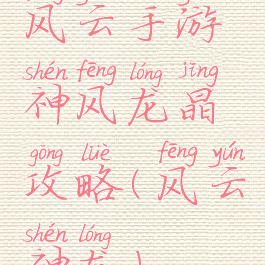 风云手游
shén fēng lóng jīng
神风龙晶
gōng lüè fēng yún
攻略(风云
shén lóng
神龙)